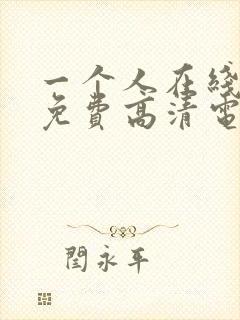 一个人在线
免费高清电
閆永平